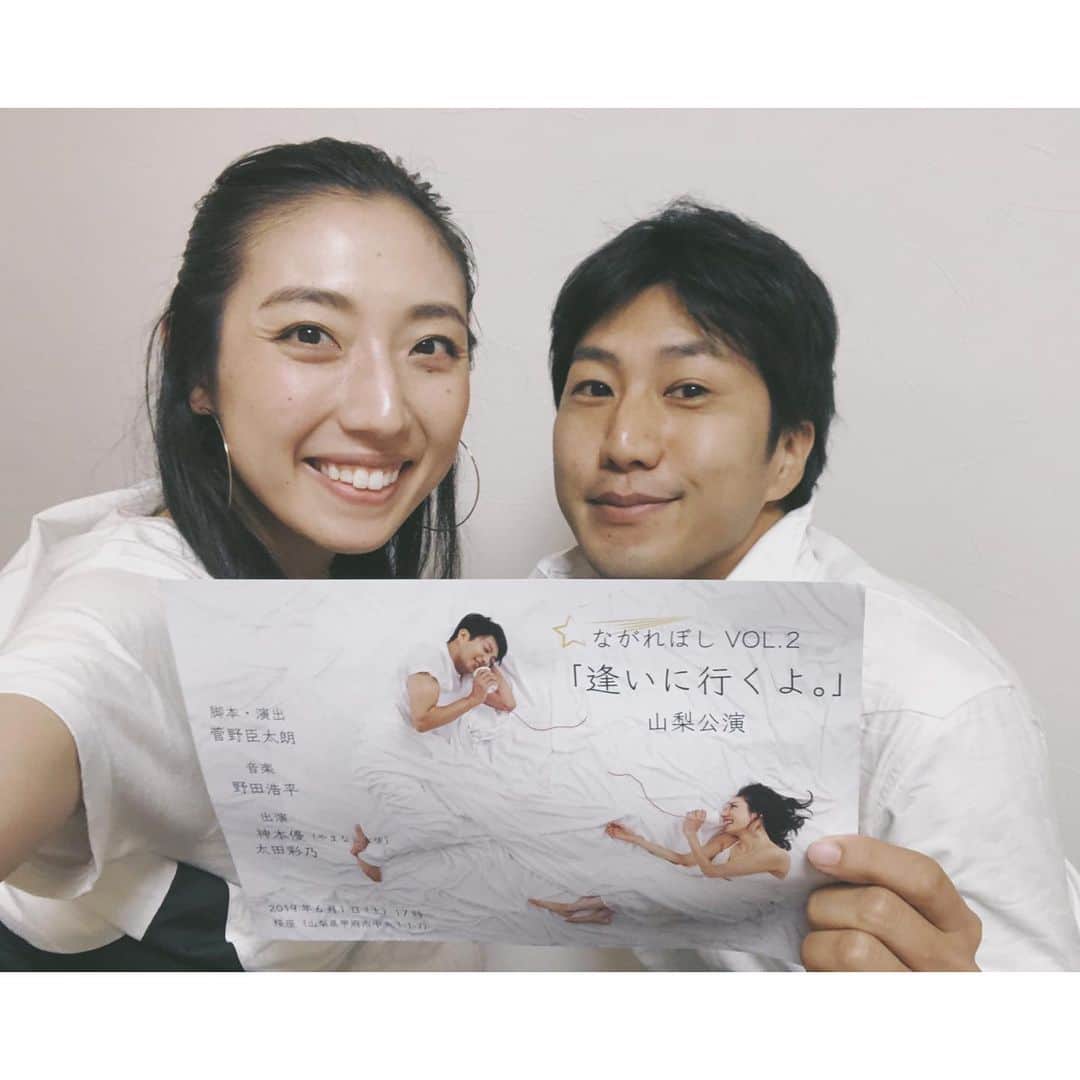 ながれぼし VOL.2
「逢いに行くよ。」
山梨公演
脚本・演出
菅野臣太朗
音楽
野田浩平
出演
神本優(やまなし大使)
太田彩乃
2019年6月1日(土) 17時
桜座(山梨県甲府市中央1-1-7)